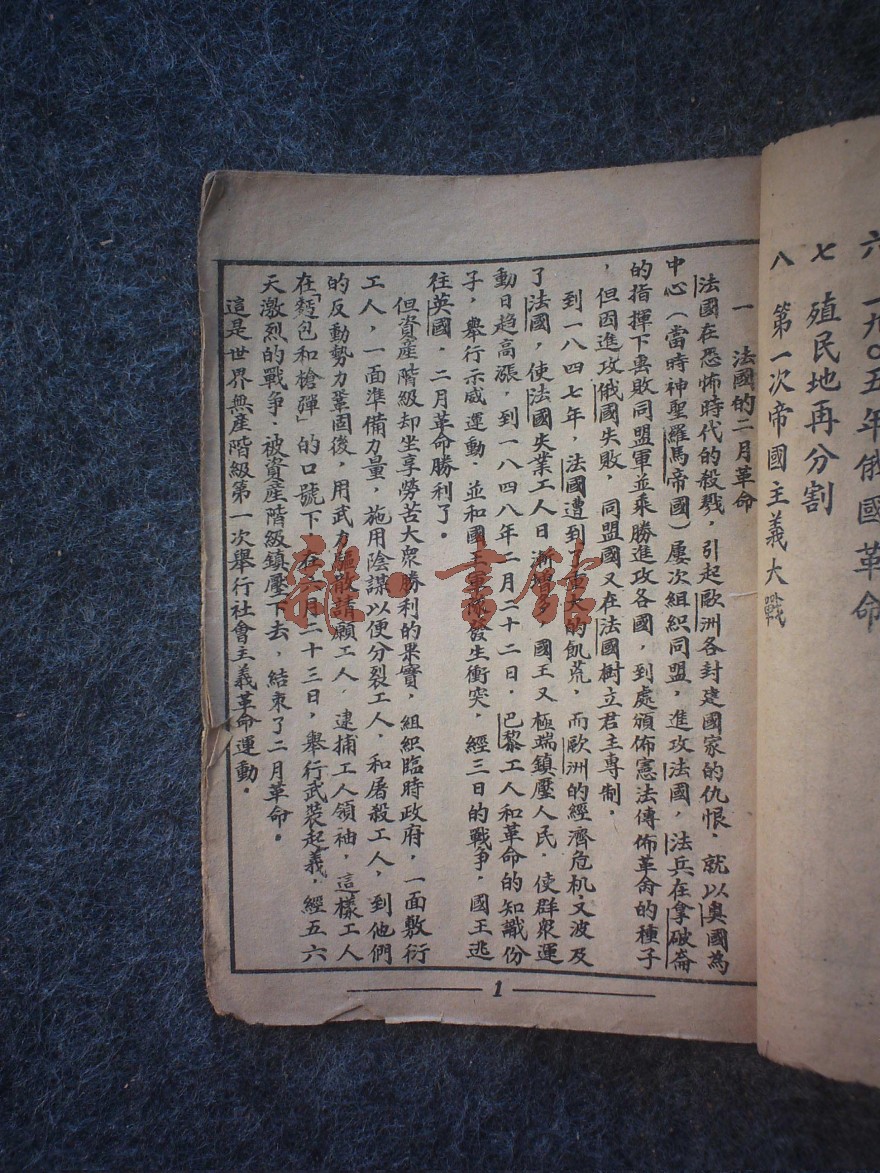 六 一九〇五年俄國革命
七 殖民地再分割
八 第一次帝國主義大戰
一 法國的二月革命
法國在恐怖時代的殺戮，引起歐洲各封建國家的仇恨．就以奧國為
中心（當時神聖羅馬帝國）屢次組織同盟，進攻法國，法兵在拿破崙
的指揮下擊敗同盟軍並乘勝進攻各國，到處頒佈憲法傳佈革命的種子
，但因進攻俄國失敗，同盟國又在法國樹立君主專制．
到一八四七年，法國遭到了重大的飢荒，而歐洲的經濟危机，又波及
了法國，使法國失業工人日漸增多，國王又極端鎮壓人民．使群衆運
動日趋高漲，到一八四八年二月二十二日，巴黎工人和革命的知識份
子，舉行示威運動．並和國王軍隊發生衝突，經三日的戰争，國王逃
往英國，二月革命勝利了。
但資產階級却坐享勞苦大衆勝利的果實，組織臨時政府，一面敷衍
工人，一面準備力量，施用陰謀以便分裂工人，和屠殺工人，到他們
的反動勢力鞏固後，用武力驅散請願工人，逮捕工人領袖，這樣工人
在「麵包和槍彈」的口號下，在六月二十三日，舉行武装起義，經五六
天激烈的戰争．被資產階級鎮壓下去，結束了二月革命。
這是世界無產階級第一次舉行社會主義革命運動。
1
龍 書館